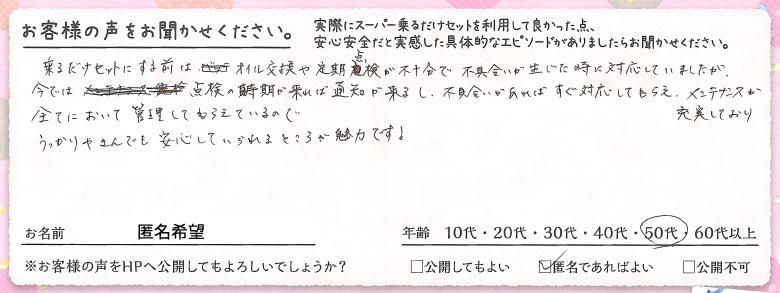 お客様の声をお聞かせください。
実際にスーパー乗るだけセットを利用して良かった点、
安心安全だと実感した具体的なエピソードがありましたらお聞かせください。
乗るだけセットにする前は オイル交換や定期点検が不十分で 不具合が生じた時に対応していましたが、
今では 点検の時期が来れば通知が来るし、不具合があればすぐ対応してもらえ、メンテナンスが
充実しており
全てにおいて管理してもらえているので
うっかりやさんでも安心していられるところが魅力です!
お名前 匿名希望
年齢 10代・20代・30代・40代・50代・60代以上
※お客様の声をHPへ公開してもよろしいでしょうか? □公開してもよい ☑匿名であればよい □公開不可